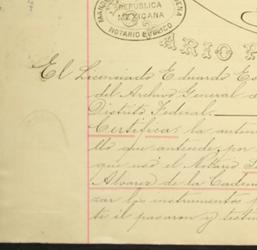 REPUBLICA
MEXICANA
NOTARIO PUBLICO
ARIO P
El Licenciado Eduardo
del Archivo General
Distrito Federal.
Certifica: la auten
que antecede, por
que usó el Notario
Alvarez de la Caden
zar los instrumentos
te él pasaron y